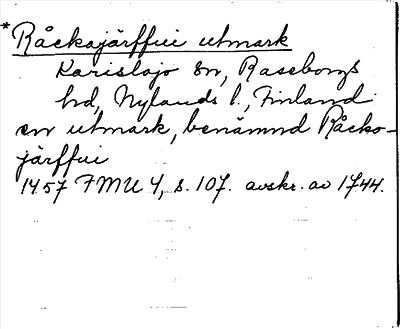 * Råckajärffui utmark
Karislojo sn, Raseborgs
hd, Nylands l., Finland
en utmark, benämnd Råcko-
järffui
1457 FMU 4, s. 107. avskr. av 1744.